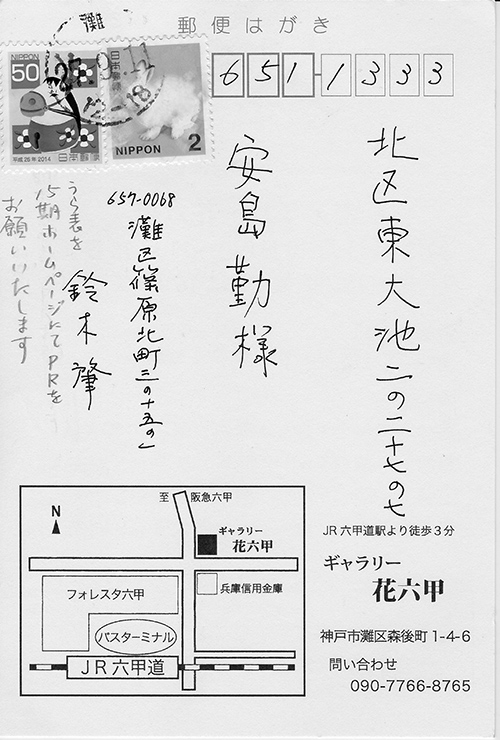 郵便はがき
灘
27.9.11
12-18
NIPPON
50
平成26年 2014
日本郵便
日本郵便
NIPPON
2
651-1333
北区東大池二の二十七の七
安島勤様
657-0068
灘区篠原北町三の十五の一
鈴木肇
うら表を
15期ホームページにてPRを
お願いいたします
N
至 阪急六甲
ギャラリー
花六甲
兵庫信用金庫
フォレスタ六甲
バスターミナル
JR六甲道
JR六甲道駅より徒歩3分
ギャラリー
花六甲
神戸市灘区森後町1-4-6
問い合わせ
090-7766-8765